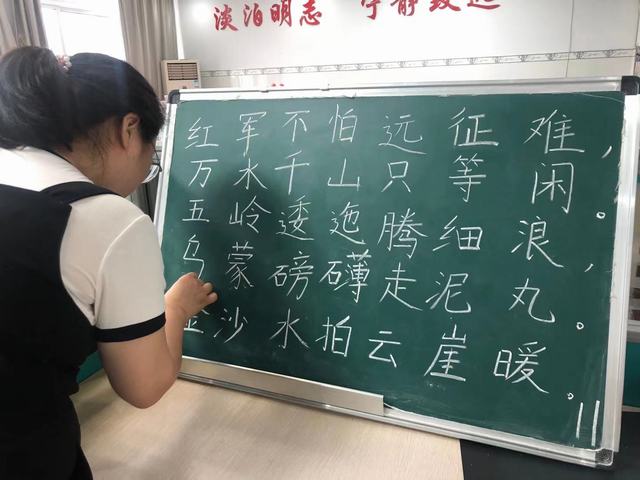 淡泊明志 宁静致远
红军不怕远征难，
万水千山只等闲。
五岭逶迤腾细浪，
乌蒙磅礴走泥丸。
金沙水拍云崖暖。
11